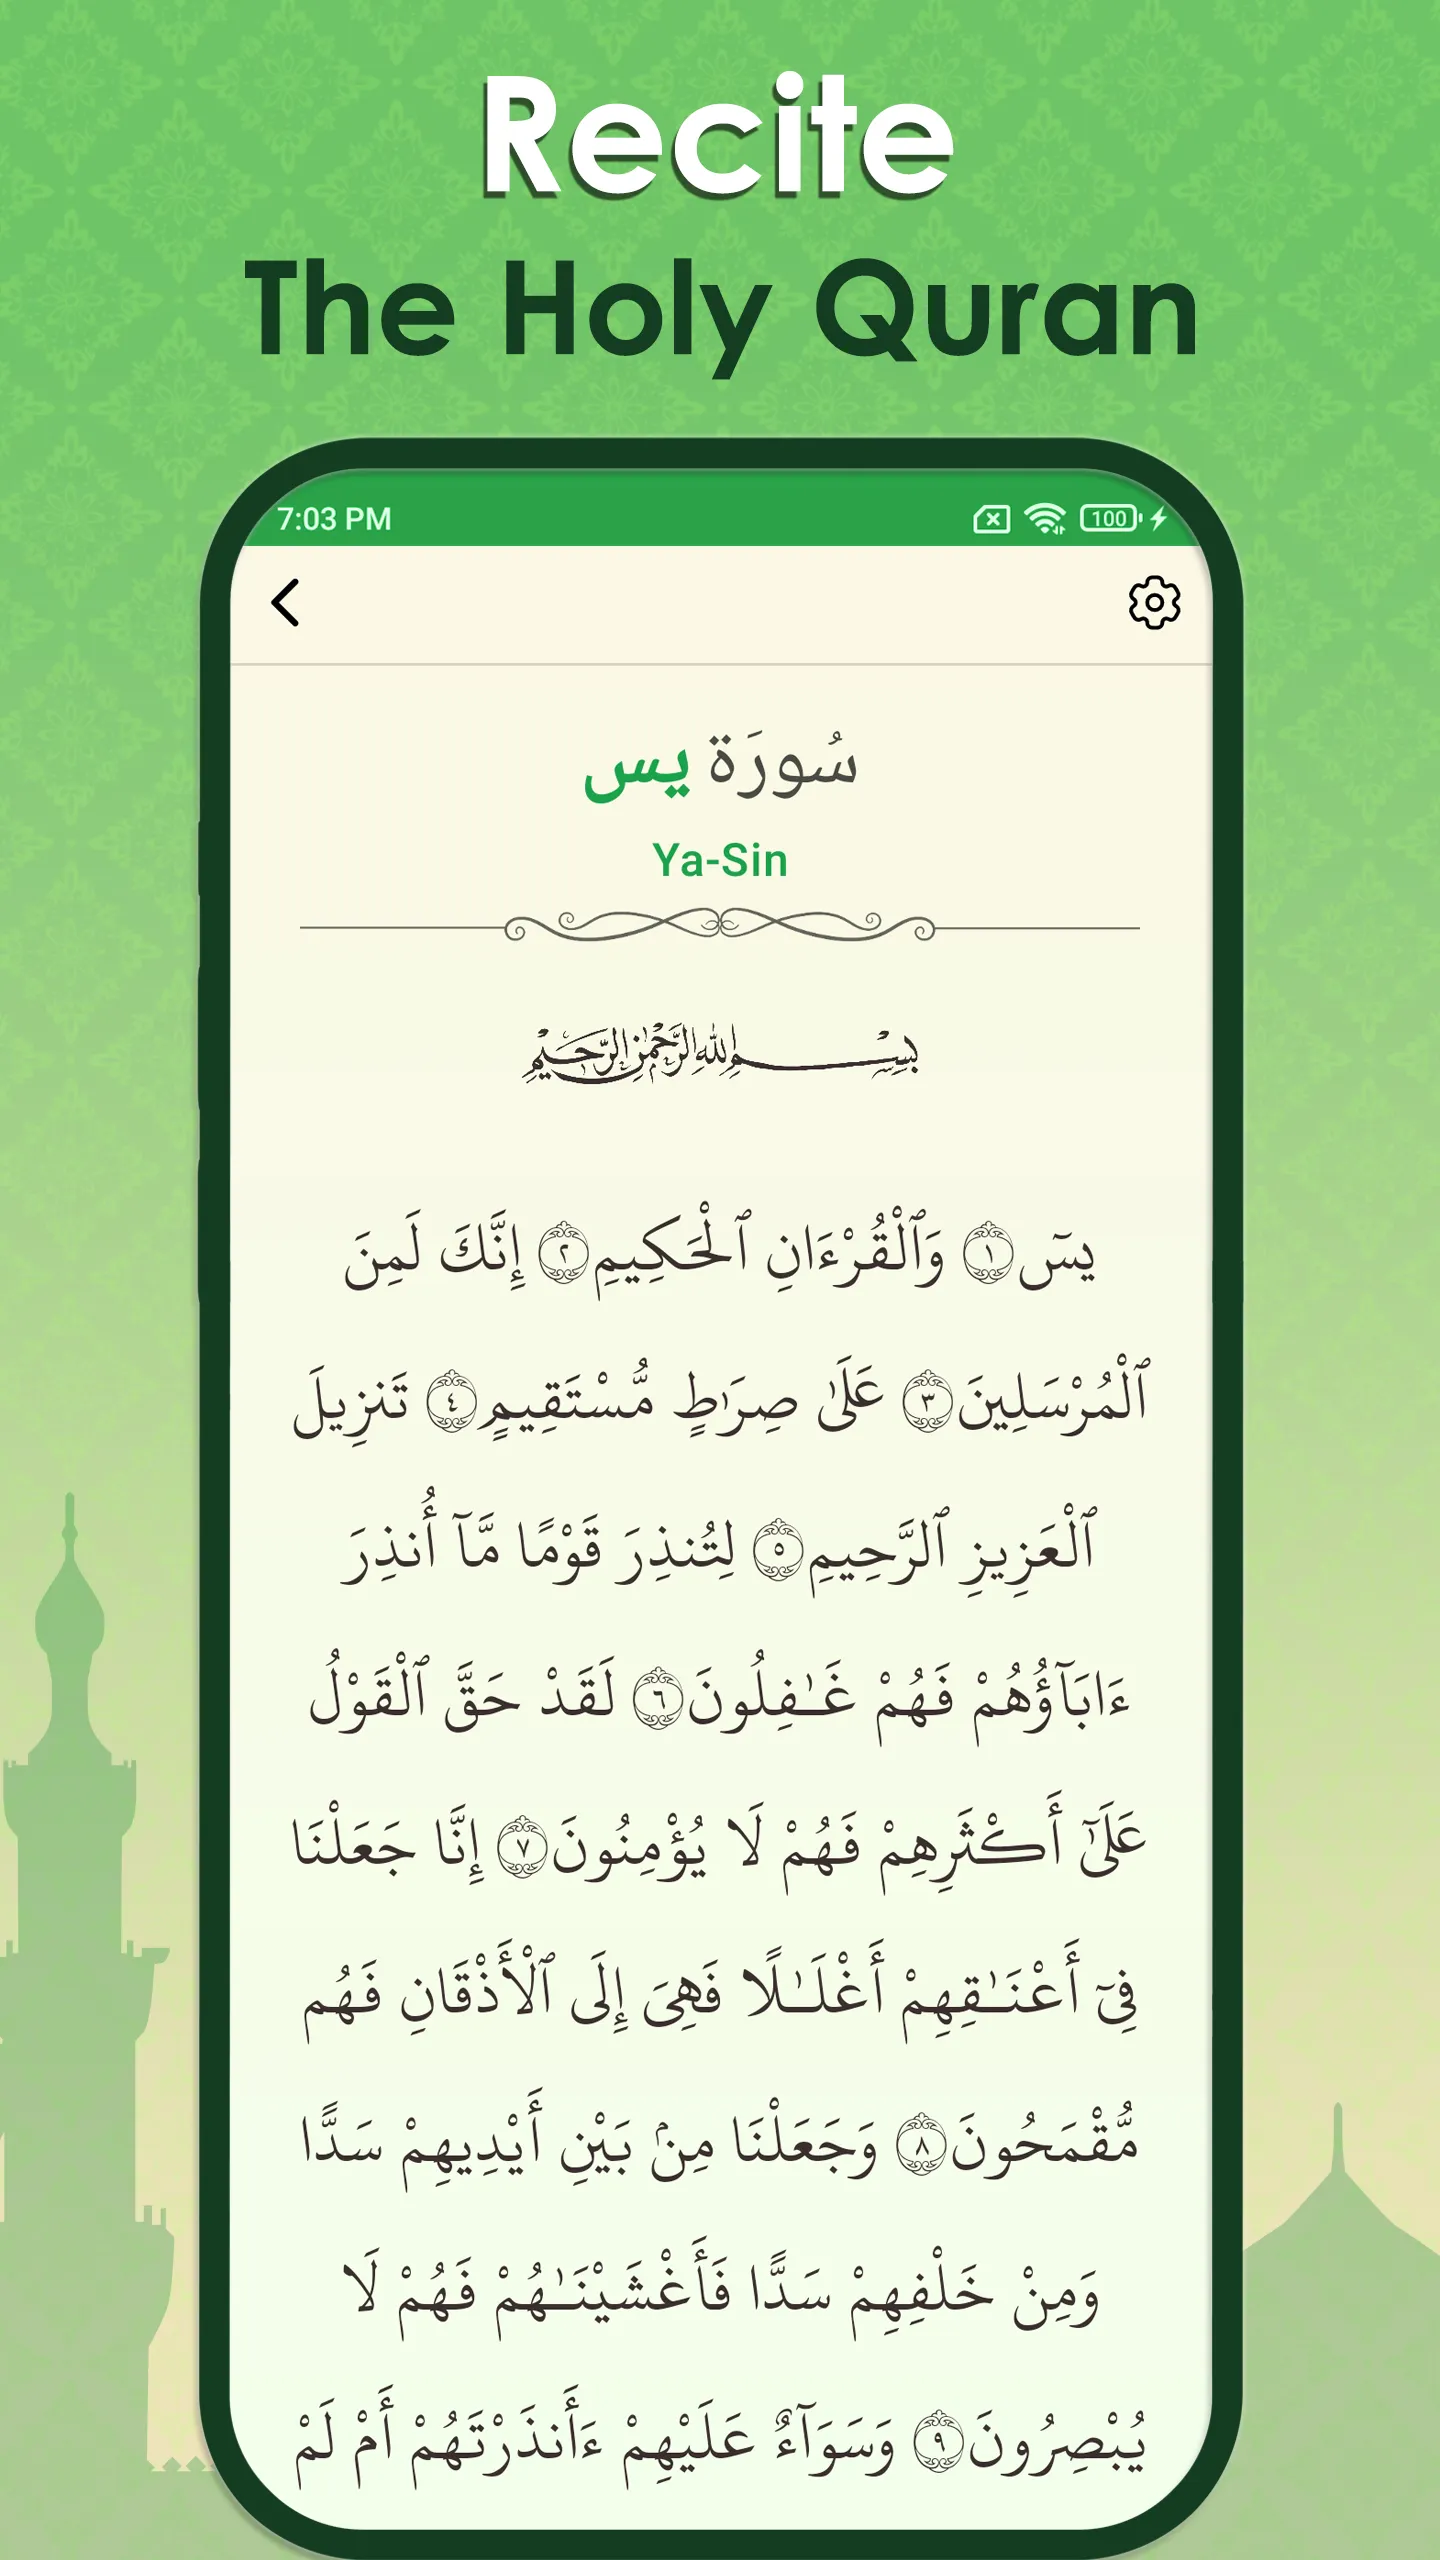 Recite
The Holy Quran
7:03 PM
100
سُورَة يس
Ya-Sin
بِسْمِ اللهِ الرَّحْمٰنِ الرَّحِيْمِ
يسٓ ١ وَٱلْقُرْءَانِ ٱلْحَكِيمِ ٢ إِنَّكَ لَمِنَ
ٱلْمُرْسَلِينَ ٣ عَلَىٰ صِرَٰطٍ مُّسْتَقِيمٍ ٤ تَنزِيلَ
ٱلْعَزِيزِ ٱلرَّحِيمِ ٥ لِتُنذِرَ قَوْمًا مَّآ أُنذِرَ
ءَابَآؤُهُمْ فَهُمْ غَـٰفِلُونَ ٦ لَقَدْ حَقَّ ٱلْقَوْلُ
عَلَىٰٓ أَكْثَرِهِمْ فَهُمْ لَا يُؤْمِنُونَ ٧ إِنَّا جَعَلْنَا
فِىٓ أَعْنَـٰقِهِمْ أَغْلَـٰلًا فَهِىَ إِلَى ٱلْأَذْقَانِ فَهُم
مُّقْمَحُونَ ٨ وَجَعَلْنَا مِنۢ بَيْنِ أَيْدِيهِمْ سَدًّا
وَمِنْ خَلْفِهِمْ سَدًّا فَأَغْشَيْنَـٰهُمْ فَهُمْ لَا
يُبْصِرُونَ ٩ وَسَوَآءٌ عَلَيْهِمْ ءَأَنذَرْتَهُمْ أَمْ لَمْ